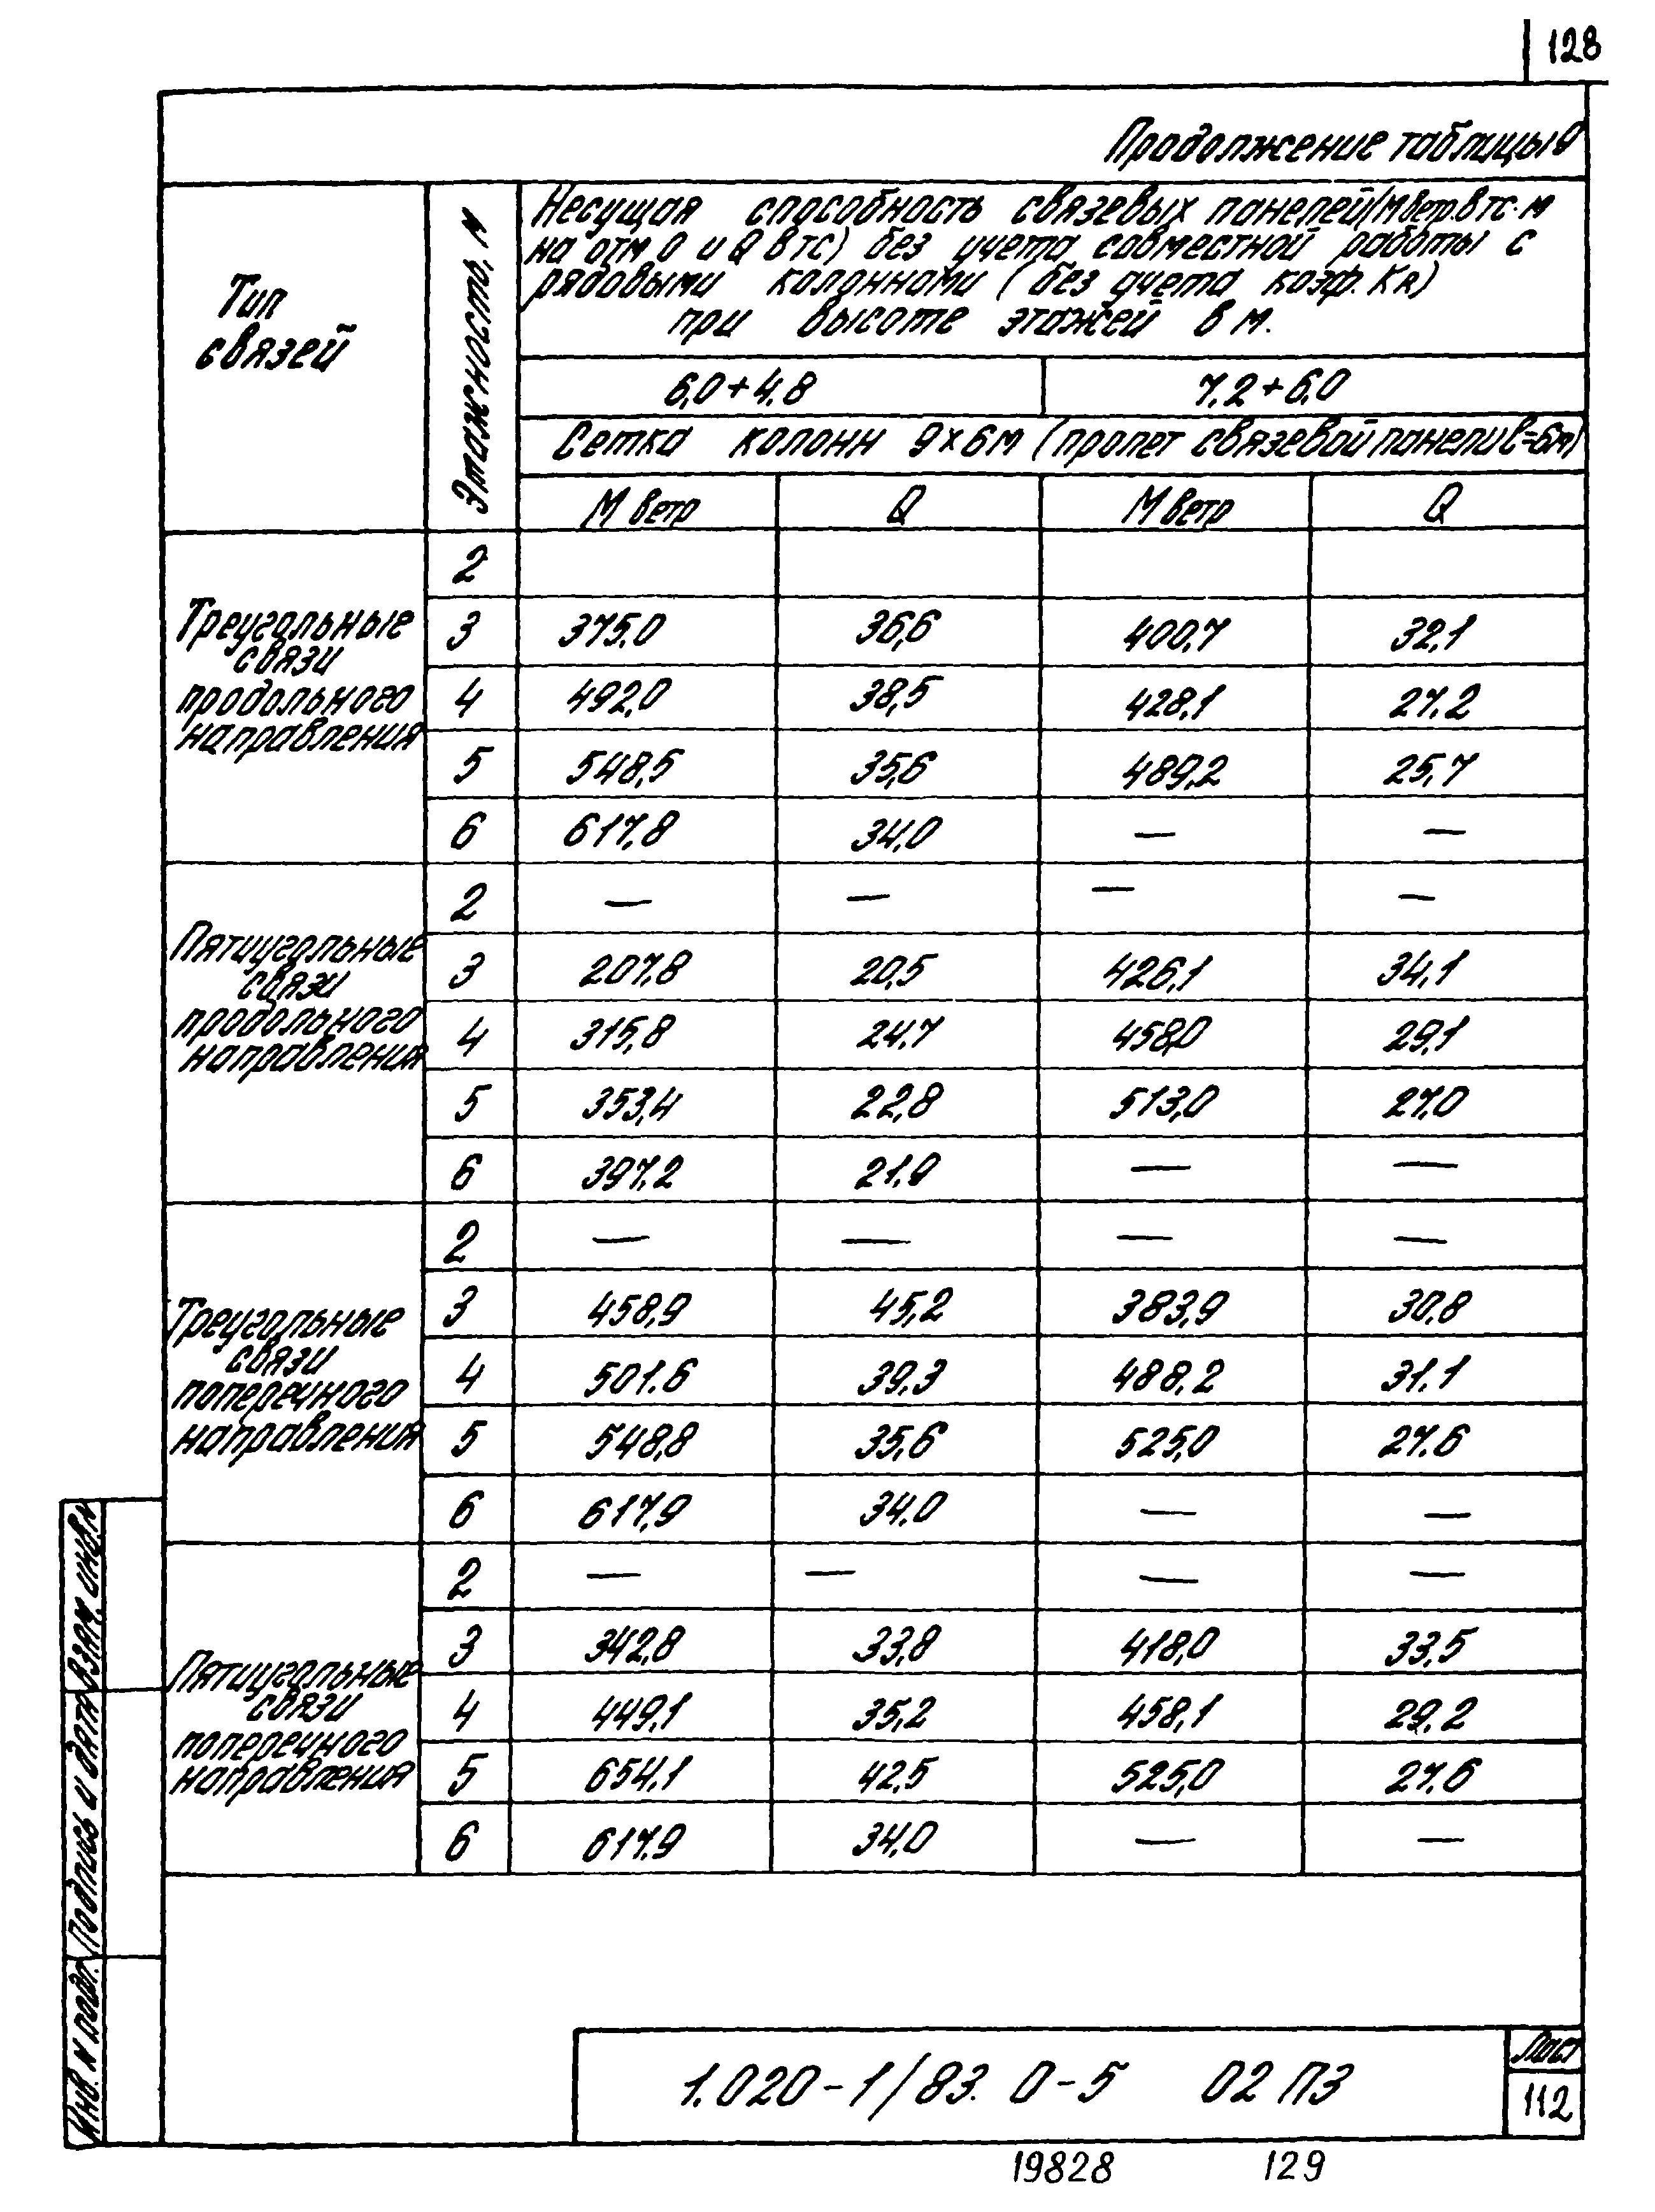 128
Продолжение таблицы 9
Тип
связей
Этажность, М
Несущая способность связевых панелей (М ветр. в тс·м
на отм 0 и Q в тс) без учета совместной работы с
рядовыми колоннами (без учета коэф. Кн)
при высоте этажей в м.
6,0+4.8 7.2+6,0
Сетка колонн 9х6м (пролет связевой панели ℓ=6м)
М ветр Q М ветр Q
Треугольные
связи
продольного
направления
2
3 375.0 36,6 400,7 32,1
4 492,0 38,5 428,1 27.2
5 548,5 35,6 489,2 25,7
6 617,8 34,0 — —
Пятиугольные
связи
продольного
направления
2 — — — —
3 207,8 20,5 426,1 34,1
4 315,8 24,7 458,0 29,1
5 353,4 22,8 513,0 27,0
6 397,2 21,9 — —
Треугольные
связи
поперечного
направления
2 — — — —
3 458,9 45,2 383,9 30,8
4 501.6 39,3 488,2 31.1
5 548,8 35,6 525,0 27.6
6 617,9 34,0 — —
Пятиугольные
связи
поперечного
направления
2 — — — —
3 342,8 33,8 418,0 33,5
4 449,1 35,2 458,1 29,2
5 654,1 42,5 525,0 27,6
6 617,9 34,0 — —
Инв. N подл. Подпись и дата Взам. инв. N
1.020-1/83. 0-5 02 ПЗ
Лист
112
19828 129